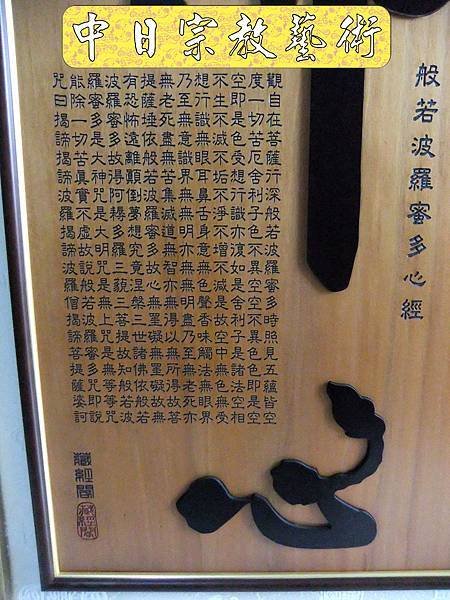 中日宗教藝術
般若波羅蜜多心經
觀自在菩薩行深般若波羅蜜多時照見五蘊皆空
度一切苦厄舍利子色不異空空不異色色即是空
空即是色受想行識亦復如是舍利子是諸法空相
不生不滅不垢不淨不增不減是故空中無色無受
想行識無眼耳鼻舌身意無色聲香味觸法無眼界
乃至無意識界無無明亦無無明盡乃至無老死亦
無老死盡無苦集滅道無智亦無得以無所得故菩
提薩埵依般若波羅蜜多故心無罣礙無罣礙故無
有恐怖遠離顛倒夢想究竟涅槃三世諸佛依般若
波羅蜜多故得阿耨多羅三藐三菩提故知般若波
羅蜜多是大神咒是大明咒是無上咒是無等等咒
能除一切苦真實不虛故說般若波羅蜜多咒即說
咒曰揭諦揭諦波羅揭諦波羅僧揭諦菩提薩婆訶
藏經閣
藏經閣